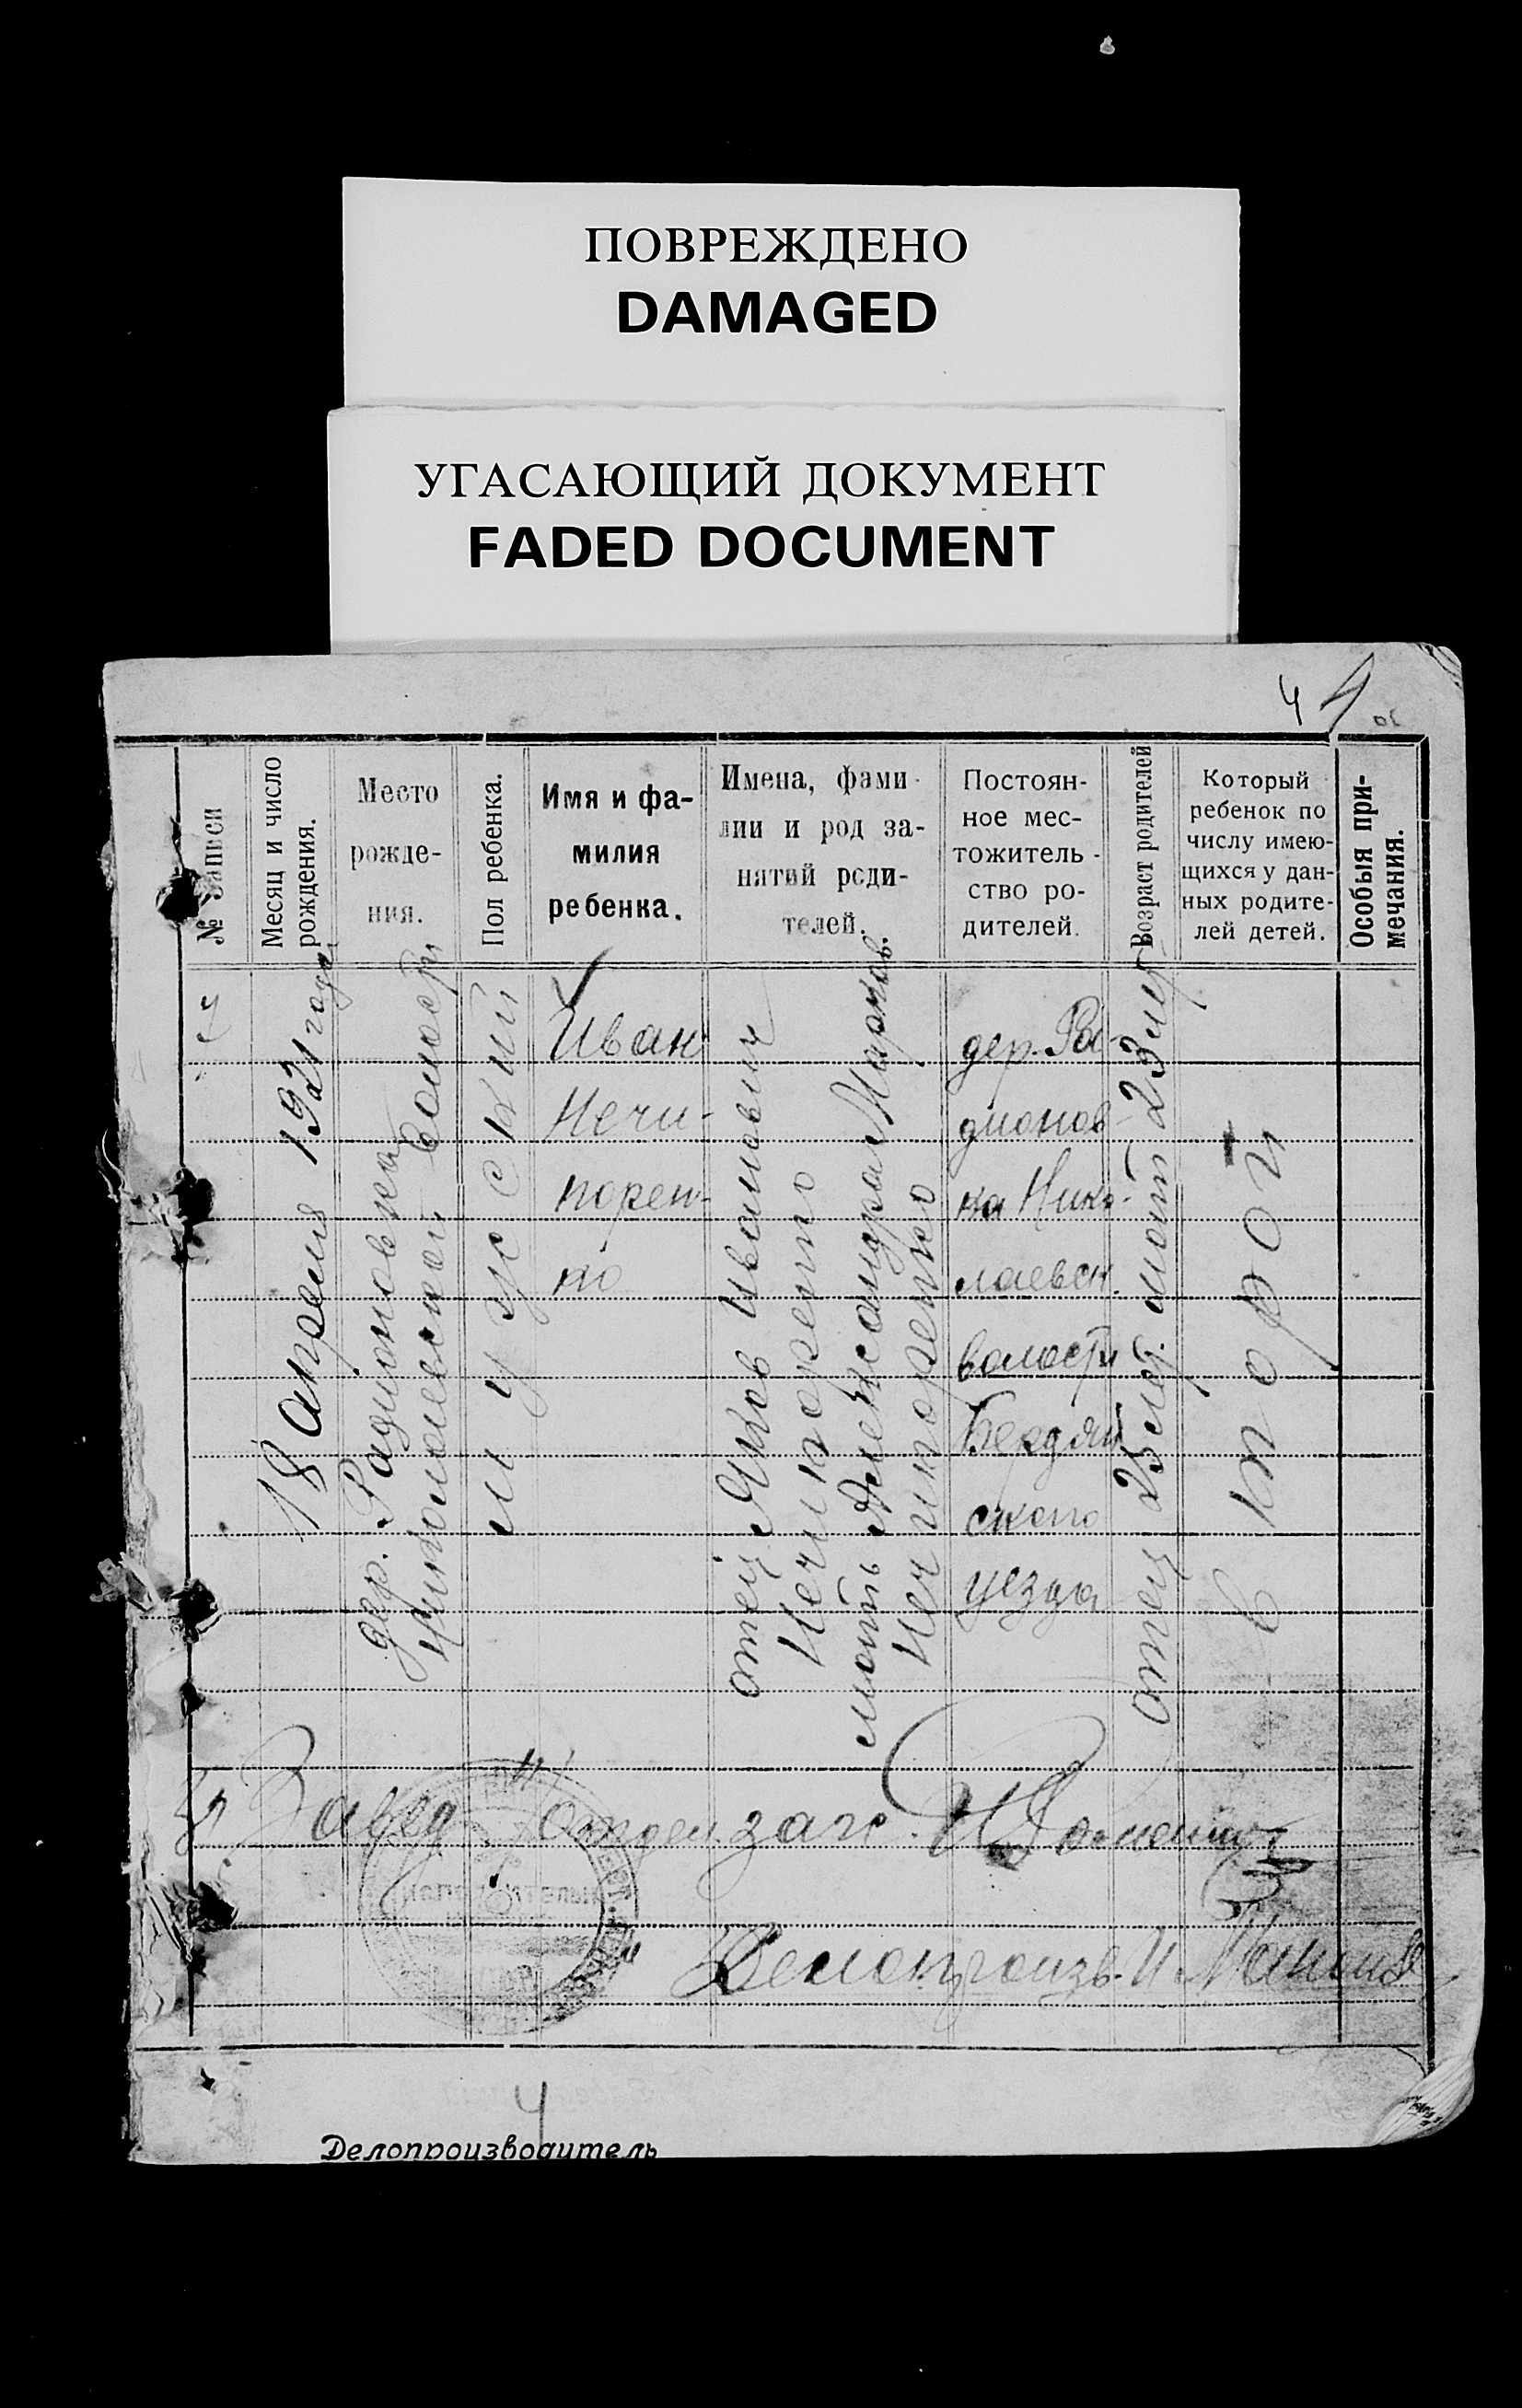 ПОВРЕЖДЕНО
DAMAGED
УГАСАЮЩИЙ ДОКУМЕНТ
FADED DOCUMENT
4
№ записи
Месяц и число
рождения.
Место
рожде-
ния.
Пол ребенка.
Имя и фа-
милия
ребенка.
Имена, фами-
лии и род за-
нятий роди-
телей.
Постоян-
ное мес-
тожитель-
ство ро-
дителей.
Возраст родителей
Который
ребенок по
числу имею-
щихся у дан-
ных родите-
лей детей.
Особыя при-
мечания.
18 апреля 1921 года
дер. Радионовка
Николаевской волости
мужский
Иван
Нечи-
порен-
ко
отец Яков Иванович
Нечипоренко
мать Александра Марков.
Нечипоренко
дер. Ра-
дионов-
ка Нико-
лаевск.
волости
Бердян
ского
уезда
отец 25 лет. мать 23 лет
второй
Завед. отдел. загс.
Делопроизв. И.
4
Делопроизводитель